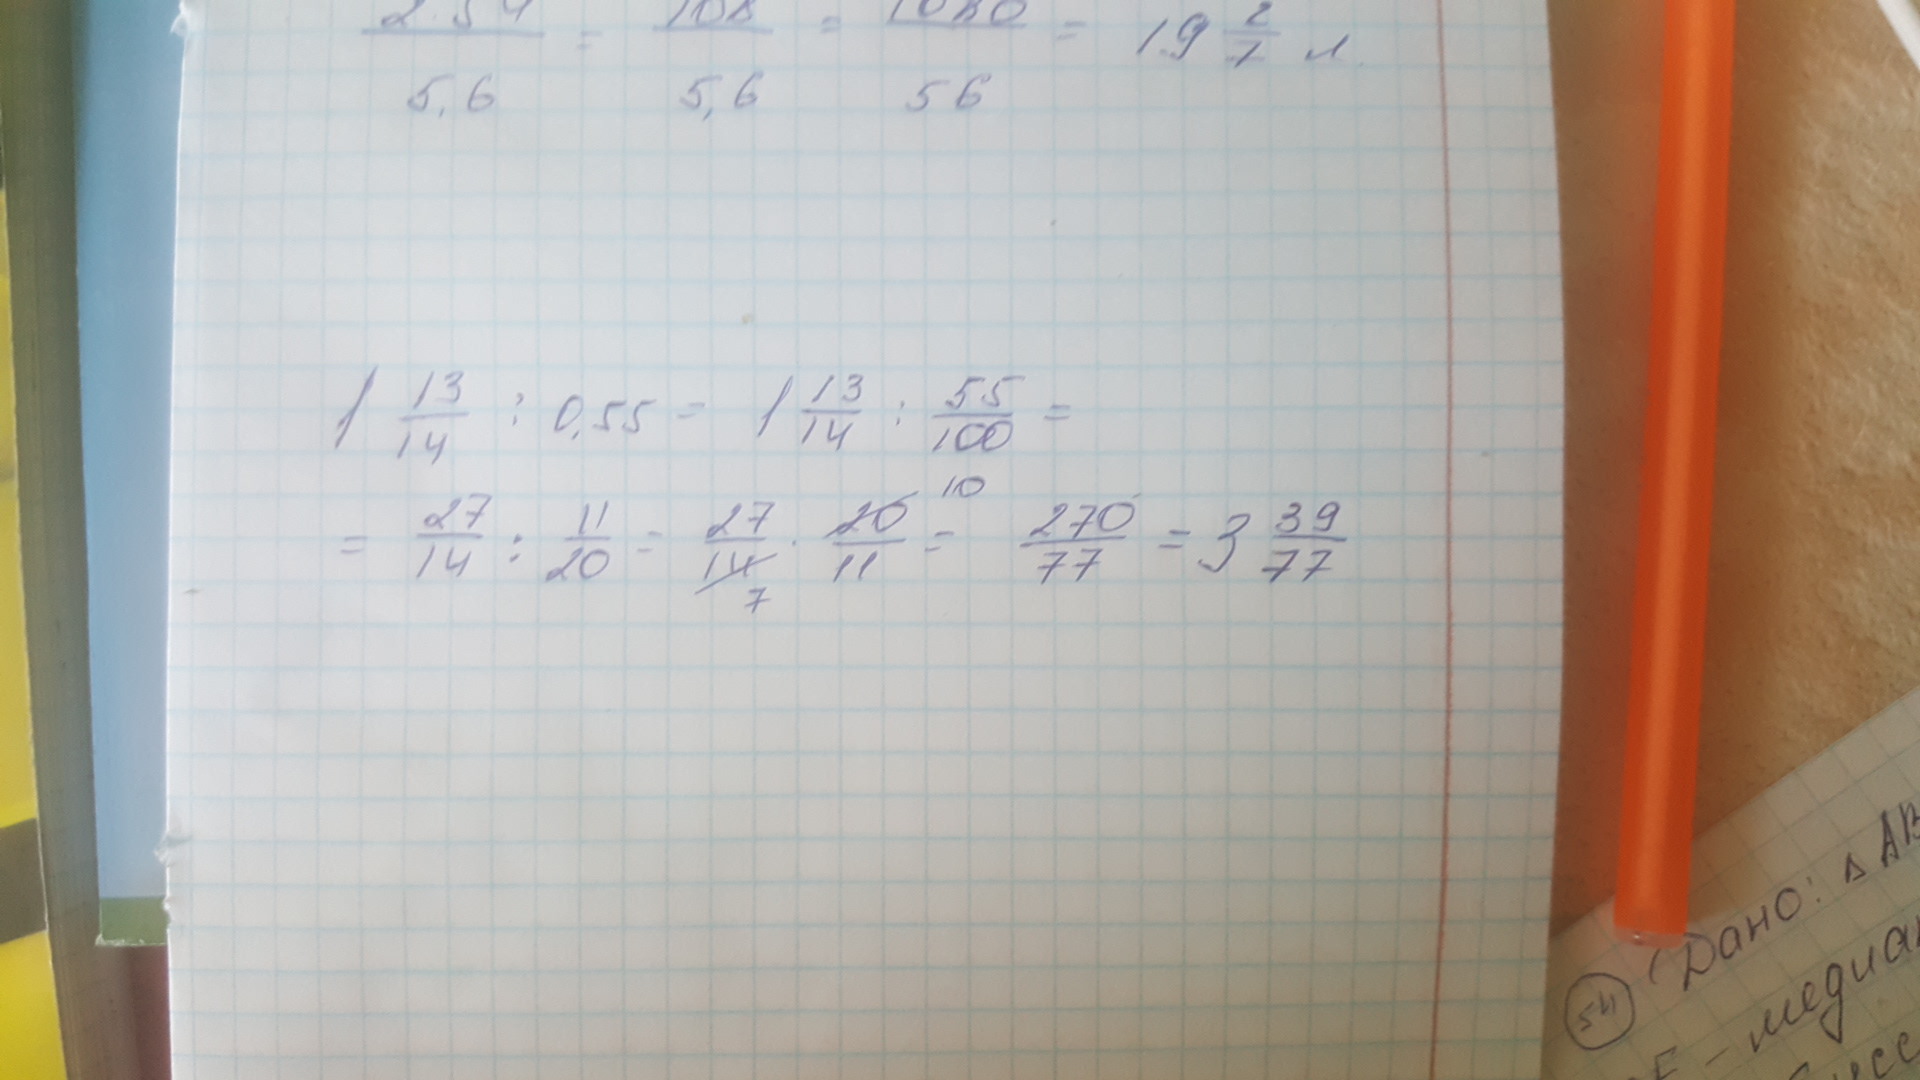 2·54/5,6 = 108/5,6 = 1080/56 = 19 2/7 л.
1 13/14 : 0,55 = 1 13/14 : 55/100 =
= 27/14 : 11/20 = 27/14 7 · 20/11 10 = 270/77 = 3 39/77
541 Дано: ∆ AB
E - медиан